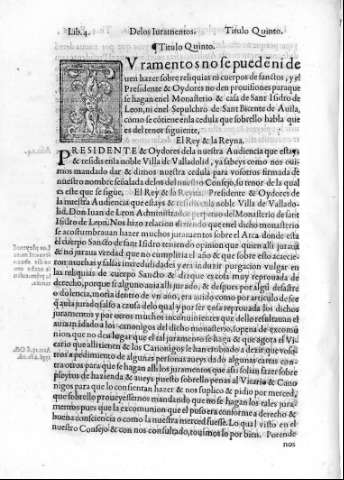 Lib. 4. De los Iuramentos. Titulo Quinto.
¶Titulo Quinto.
IVramentos no se puedē ni de
uen hazer sobre reliquias ni cuerpos de sanctos, y el
Presidente & Oydores no den prouisiones para que
se hagan en el Monasterio & casa de Sant Isidro de
Leon, ni en el Sepulchro de Sant Bicente de Auila,
como se cōtiene en la cedula que sobrello habla que
es del tenor siguiente,
El Rey & la Reyna.
PRESIDENTE & Oydores de la nuestra Audiencia que estays
& residis en la noble Villa de Valladolid, ya sabeys como nos oui
mos mandado dar & dimos nuestra cedula para vosotros firmada de
nuestro nombre señalada de los del nuestro Consejo, su tenor de la qual
es este que se sigue, El Rey & la Reyna. Presidente & Oydores de
la nuestra Audiencia que estays & residis en la noble Villa de Vallado-
lid. Don Iuan de Leon Administrador perpetuo del Monasterio de sant
Isidro de Leon. Nos hizo relacion diziendo que en el dicho monasterio
se acostumbrauan hazer muchos juramentos sobre el Arca donde esta
el cuerpo Sancto de sant Isidro teniendo opinion que quien alli juraua
nō juraua verdad que no cumpliria el año & que sobre esto acaecien
muchas y falsas incredulidades y era a dezir purgacion vulgar en
las reliquias de cuerpo Sancto & dizque es cosa muy reprouada de
derecho, porque si alguno auia alli jurado, & despues por algū desastre
o dolencia, moria dentro de vn año, era auido como por articulo de fee
q̄ auia jurado falso a cuya causa lo qual y por ser cosa reprouada los dichos
juramentos y por otros muchos inconuinientes que dello resultauan el
auia pedido a los canonigos del dicho monasterio, so pena de excomu
nion que no den lugar que el tal juramento se haga & que agora el Vi-
cario que alli tienen & los Canonigos le han embiado a dezir que voso
tros a pedimento de algunas personas aueys dado algunas cartas con-
tra otros para que se hagan alli los juramentos que assi solian fazer sobre
psoytos de hazienda & aueys puesto sobrello penas al Vicario & Cano
nigos para que lo consientan hazer & nos suplico & pidio por merced,
que sobrello proueyessemos mandando que no se hagan los tales jura-
mentos pues la excomunion que el puso era conforme a derecho &
buena consciencia o como la nuestra merced fuesse. Lo qual visto en el
nuestro Consejo & con nos consultado, touimos lo por bien. Porende
nos